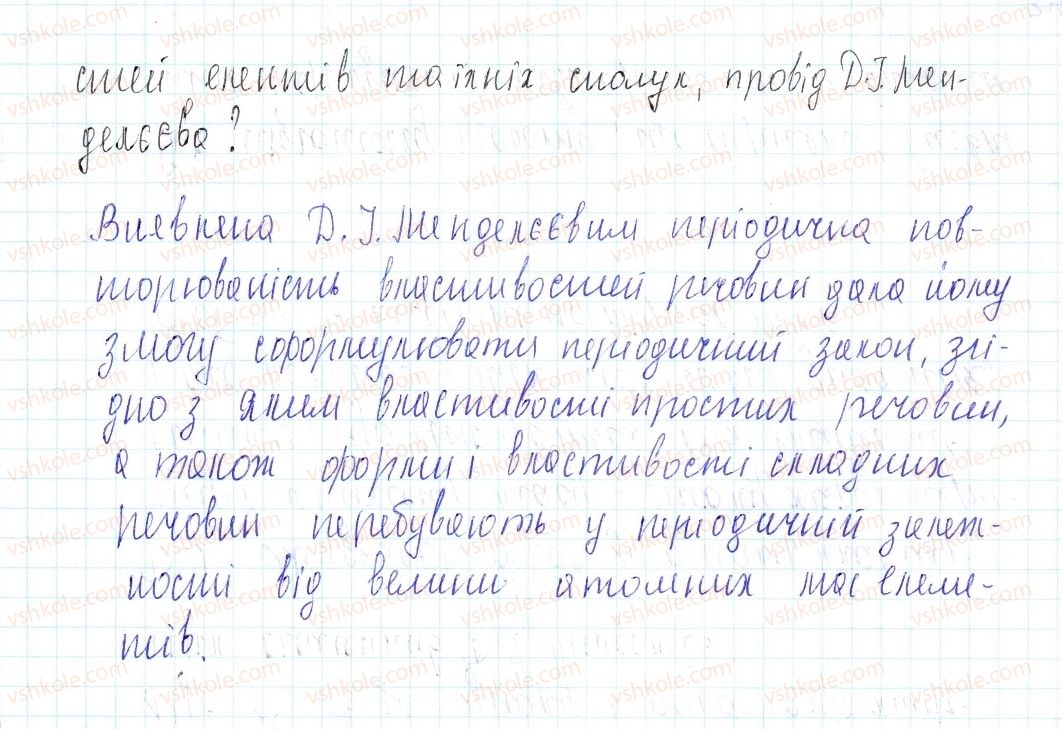 стей елентів та їхніх сполук, провід Д.І.Мен-
делєєва?
Виевлена Д.І.Менделєєвим періодична пов-
торюваність властивостей речовин дала йому
змогу сформулювати періодичний закон, згі-
дно з яким властивості простих речовин,
а також форми і властивості складних
речовин перебувають у періодичній залеж-
ності від величи атомних мас елеме-
тів.